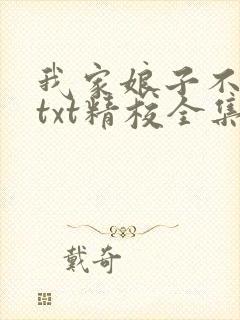 我家娘子不
txt精校全集
戴奇